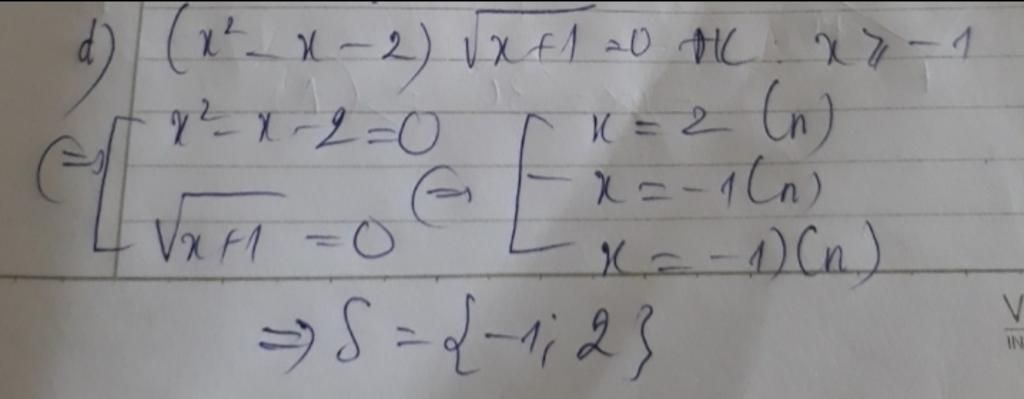 d) (x² - x - 2) √(x+1) = 0 ĐK: x ≥ -1
⇔ [ x² - x - 2 = 0
√(x+1) = 0 ⇔ [ x = 2 (n)
x = -1 (n)
x = -1) (n)
⇒ S = {-1; 2}
V
IN